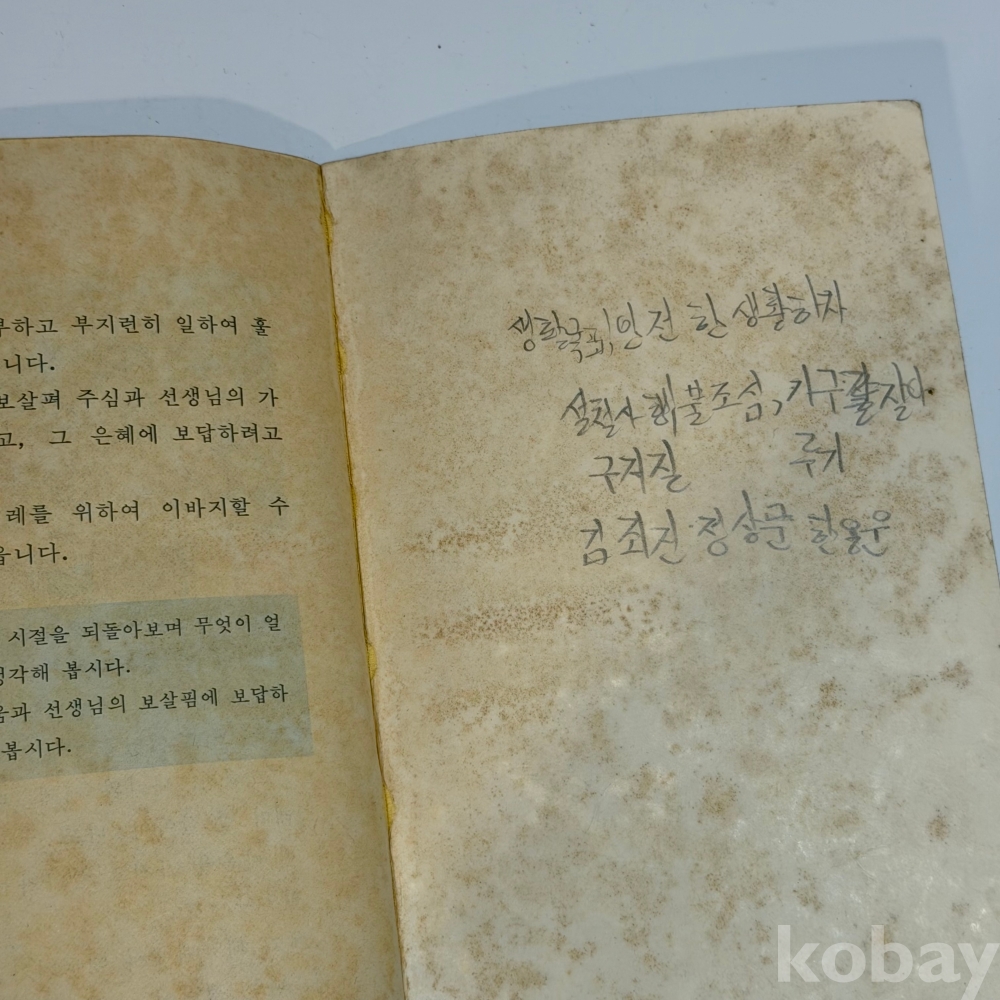 부하고 부지런히 일하여 훌
니다.
보살펴 주심과 선생님의 가
고, 그 은혜에 보답하려고
레를 위하여 이바지할 수
읍니다.
시절을 되돌아보며 무엇이 얼
생각해 봅시다.
움과 선생님의 보살핌에 보답하
봅시다.
안전 한 생활하자
불조심, 가구활
구저질 루기
김 정상문
kobay